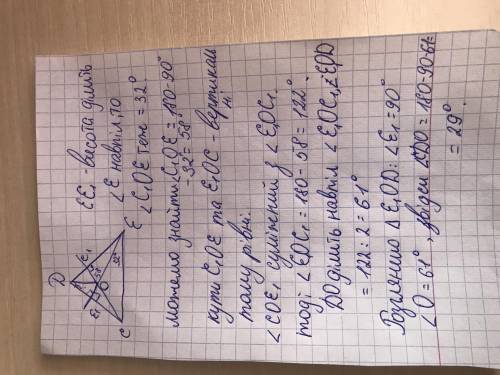 Д
E₁
C₁
O
32°
E
C
EE₁ - висота ділить
∠E навпіл, то
∠C₁OE теж = 32°.
Можемо знайти ∠C₁OE = 180-90°
-32 = 58°
кути C₁OE та E₁OC - вертикаль
ні
тому рівні.
∠COE₁ суміжний з ∠E₁OC₁
тоді ∠E₁OC₁ = 180 - 58 = 122°
DO ділить навпіл ∠E₁OC₁, ∠E₁OD
= 122 : 2 = 61°.
Розглянемо Δ E₁OD: ∠E₁ = 90°
∠O = 61°, звідси ∠E₁DO = 180-90-61=
= 29°.